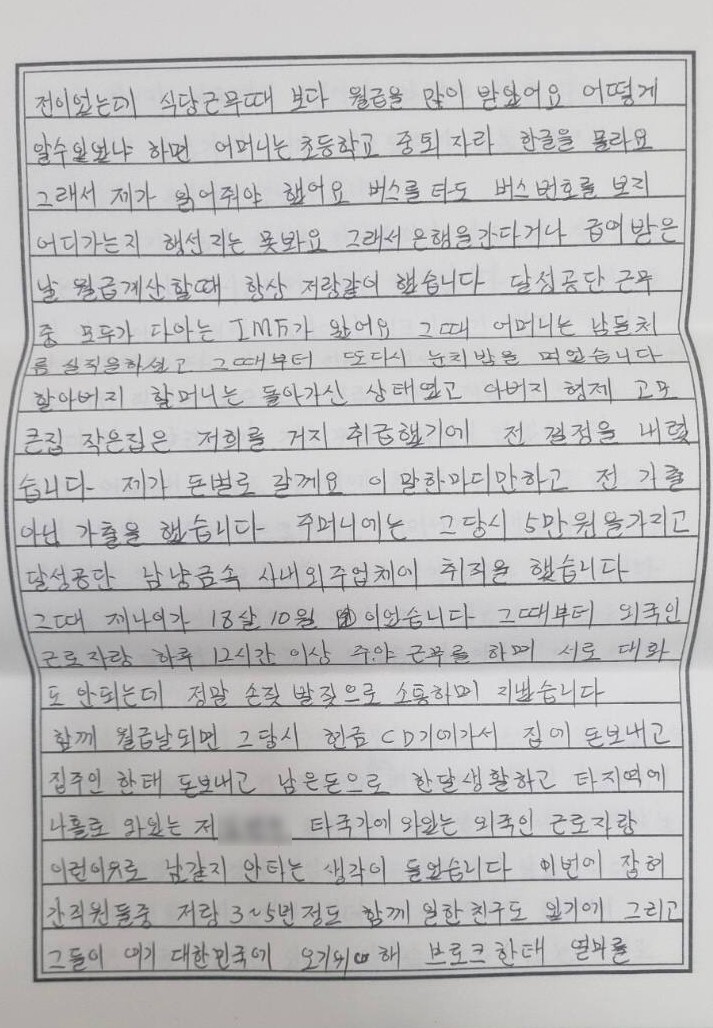 전이었는데 식당근무때 보다 월급을 많이 받았어요 어떻게
알수있었냐 하면 어머니는 초등학교 중퇴 자라 한글을 몰라요
그래서 제가 읽어줘야 했어요 버스를 타도 버스번호를 보지
어디가는지 행선지는 못봐요 그래서 은행을간다거나 급여 받은
날 월급계산할때 항상 저랑같이 했습니다 달성공단 근무
중 모두가 다아는 IMF가 왔어요 그때 어머니는 남들처
름 실직을하셨고 그때부터 또다시 눈치밥을 먹었습니다
할아버지 할머니는 돌아가신 상태였고 아버지 형제 고모
큰집 작은집은 저희를 거지 취급했기에 전 결정을 내렸
습니다. 제가 돈벌로 갈께요 이 말한마디만하고 전 가출
아닌 가출을 했습니다. 주머니에는 그당시 5만원을가지고
달성공단 남냥금속 사내외주업체에 취직을 했습니다
그때 제나이가 18살 10월 이었습니다 그때부터 외국인
근로자랑 하루 12시간 이상 주.야 근무를 하며 서로 대화
도 안되는데 정말 손짓 발짓으로 소통하며 지냈습니다
함께 월급날되면 그당시 현금 CD기에가서 집에 돈보내고
집주인 한태 돈보내고 남은돈으로 한달생활하고 타지역에
나홀로 와있는 저 타국가에 와있는 외국인 근로자랑
이런이유로 남같지 안타는 생각이 들었습니다 이번에 잡혀
간직원들중 저랑 3~5번 정도 함께 일한친구도 있기에 그리고
그들이 여기 대한민국에 오기위해 브로크한태 얼마를